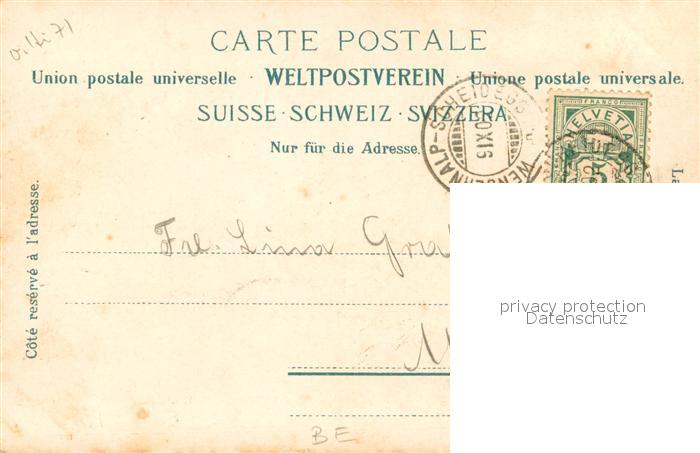 CARTE POSTALE
Union postale universelle · WELTPOSTVEREIN · Unione postale universale.
SUISSE · SCHWEIZ · SVIZZERA
Nur für die Adresse.
Côté reservé à l'adresse.
FRANCO
HELVETIA
5
WENGERNALP-SCHEIDEGG
Frl. Lina
privacy protection
Datenschutz
BE